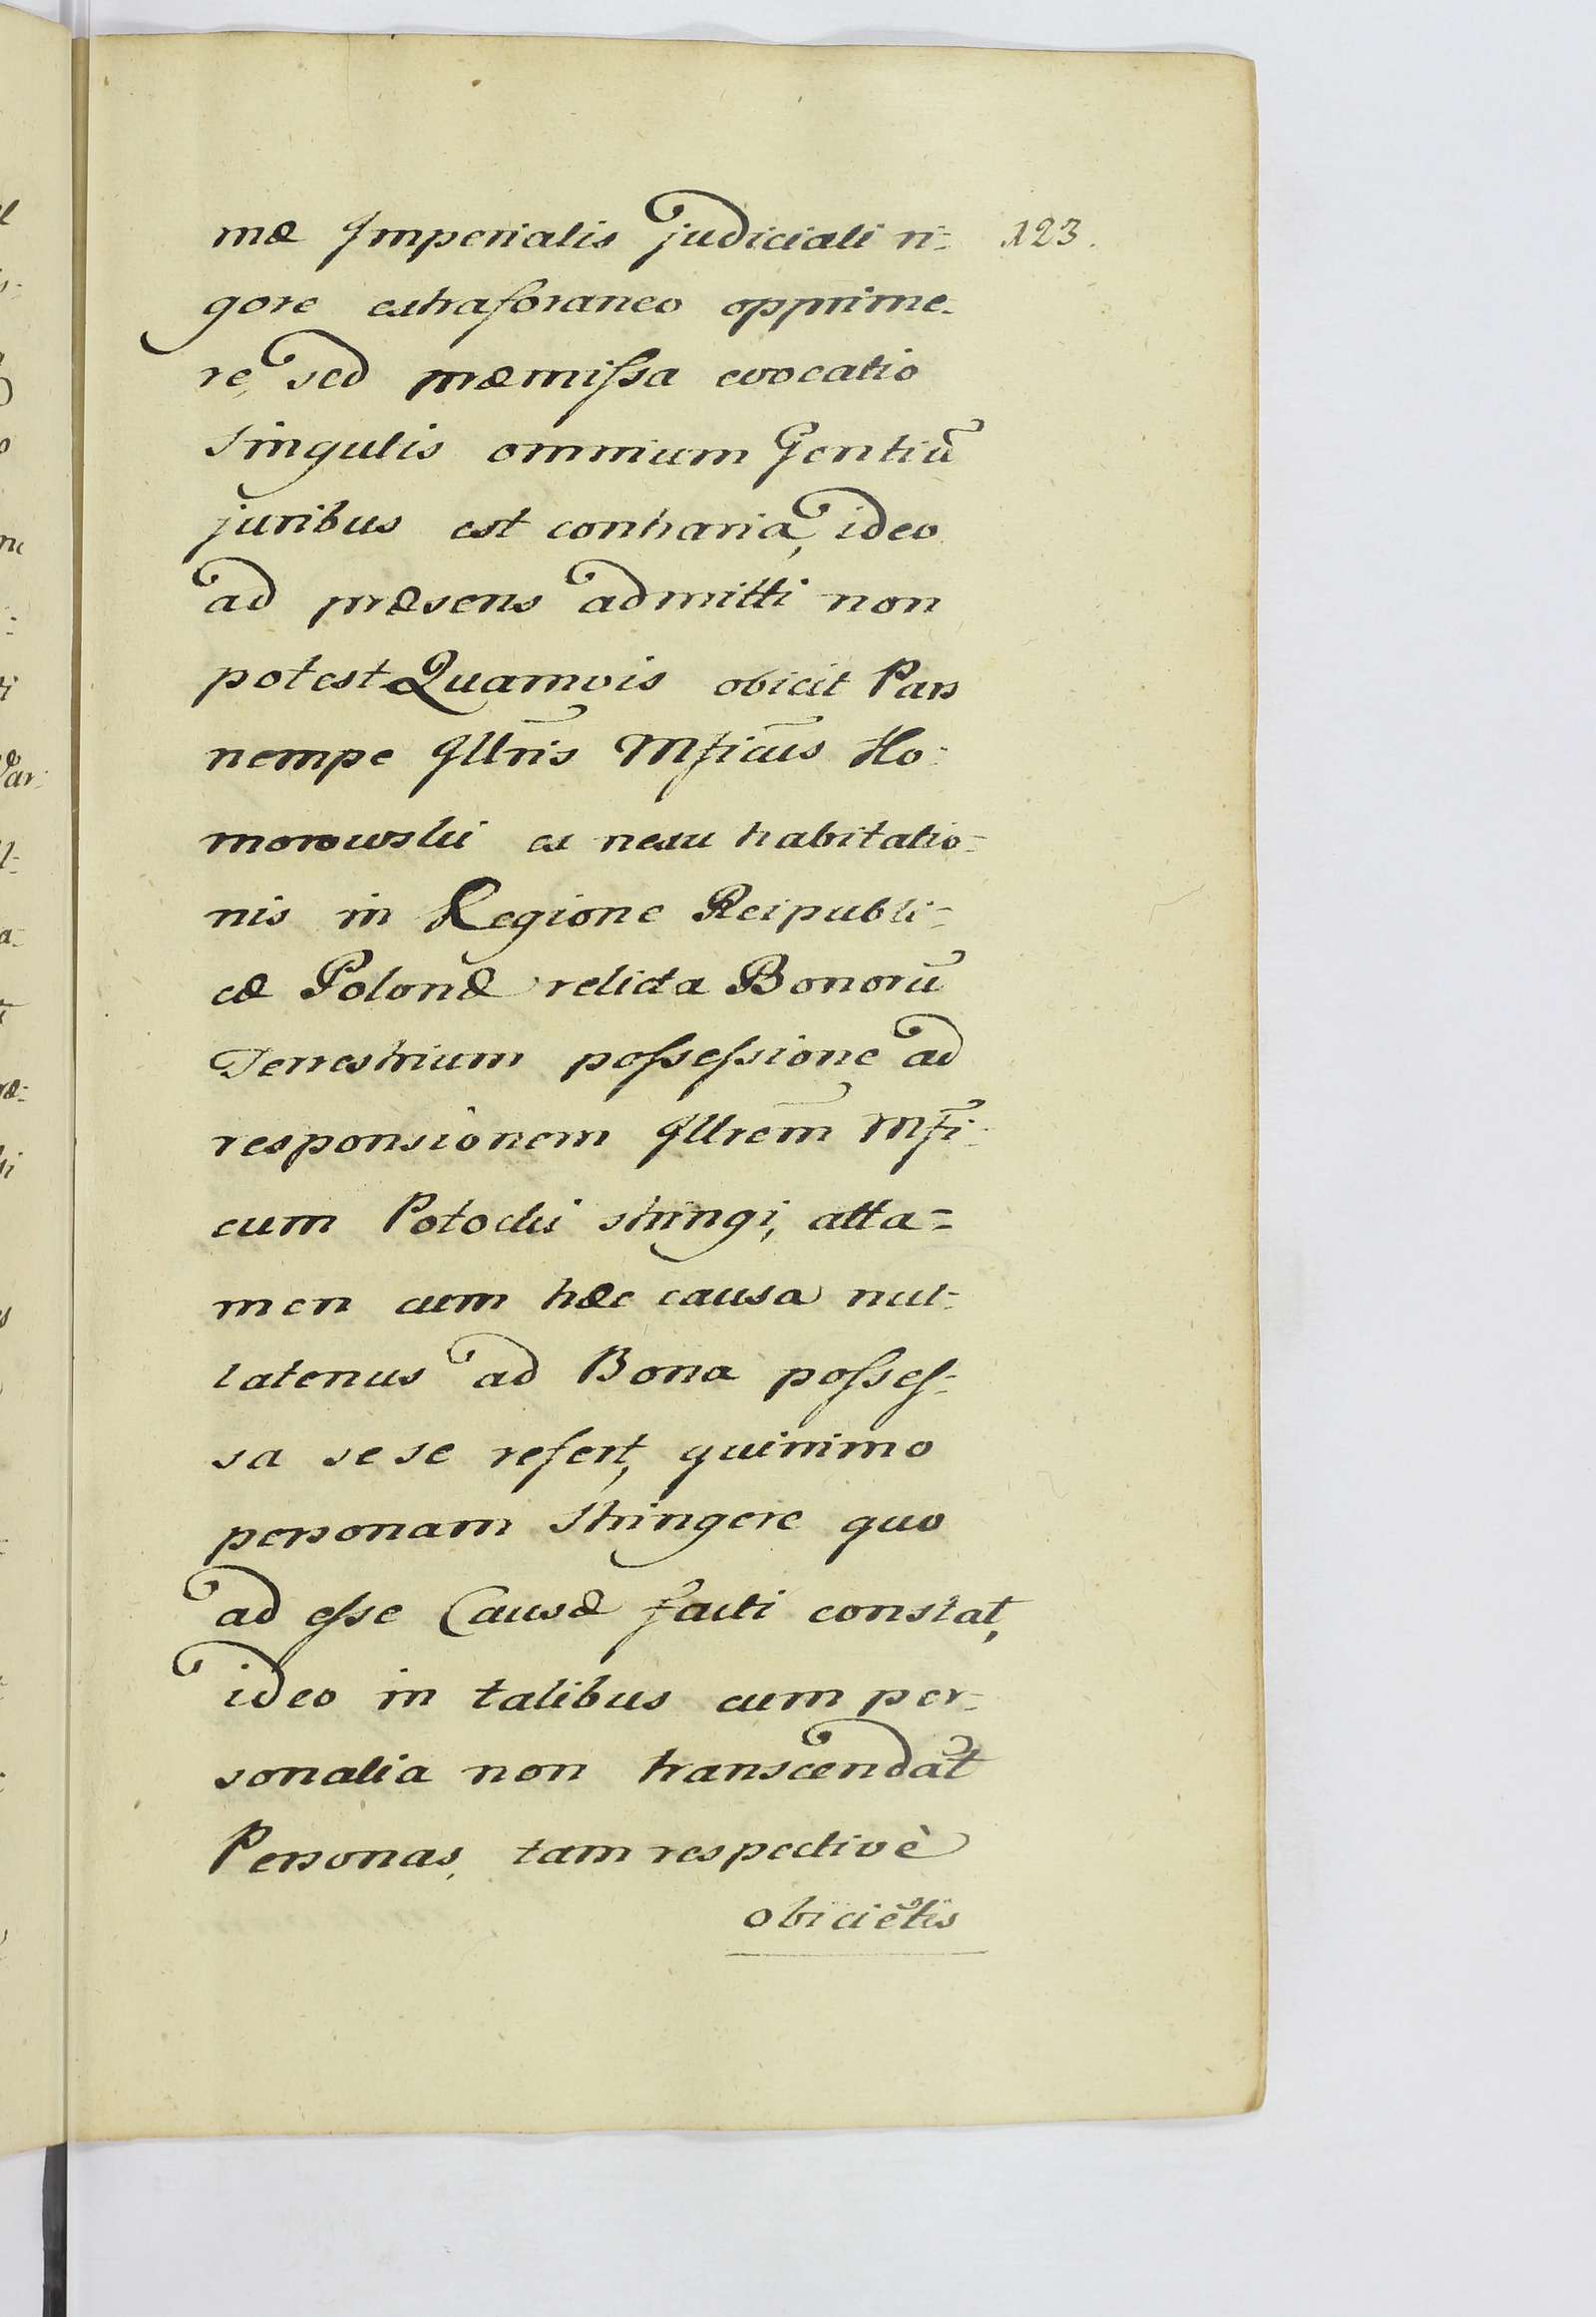 mæ Imperialis judiciali ri- 123.
gore extraforaneo opprime-
re, sed præmissa evocatio
singulis omnium Gentiũ
juribus est contraria, ideo
ad præsens admitti non
potest Quamvis obicit Pars
nempe Illr̃is Mficũs Ho-
morowski ex nexu habitatio-
nis in Regione Reipubli-
cæ Polonæ relicta Bonorũ
Terrestrium possessione ad
responsionem Illrem̃ Mfi-
cum Potocki stringi, atta-
men cum hæc causa nul-
latenus ad Bona posses-
sa sese refert, quinimo
personam stringere quo
ad esse Causæ facti constat,
ideo in talibus cum per-
sonalia non transcendãt
Personas, tam respectivè
obiciẽtis